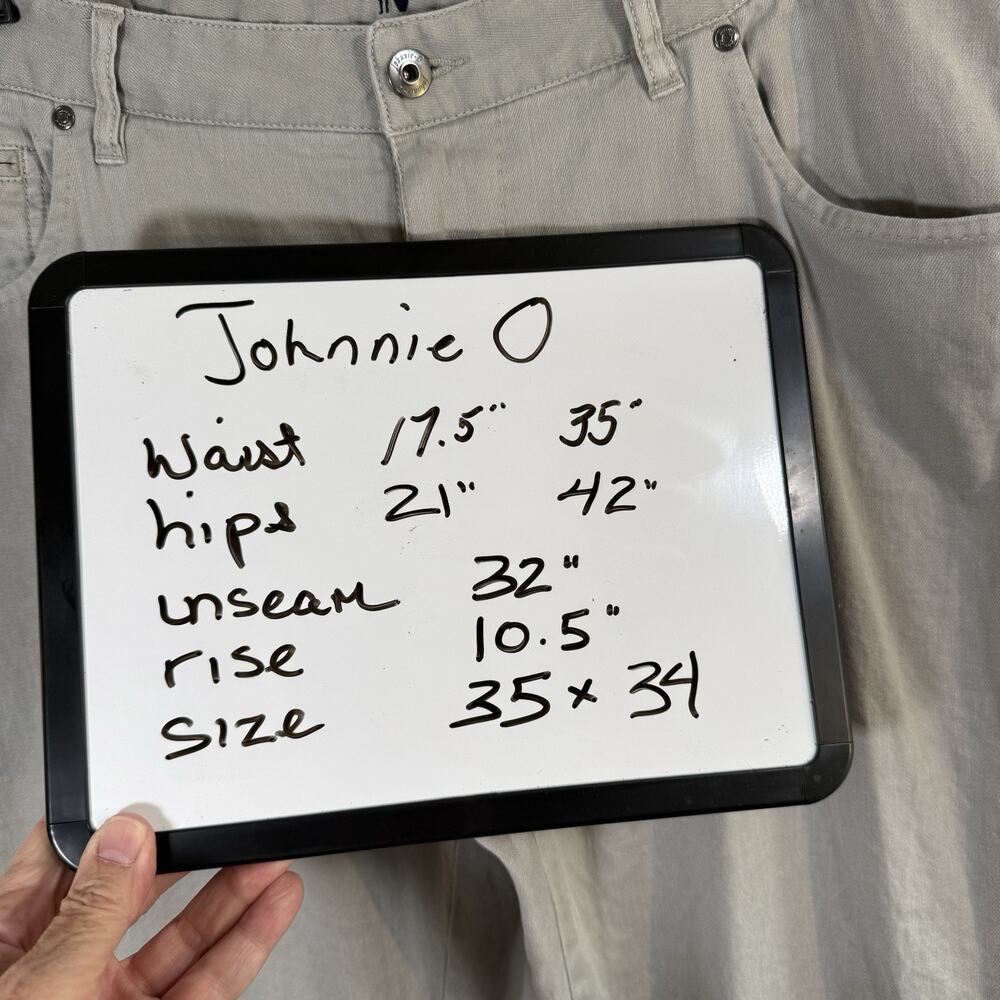 Johnnie O
Waist 17.5" 35"
hips 21" 42"
inseam 32"
rise 10.5"
size 35 x 34